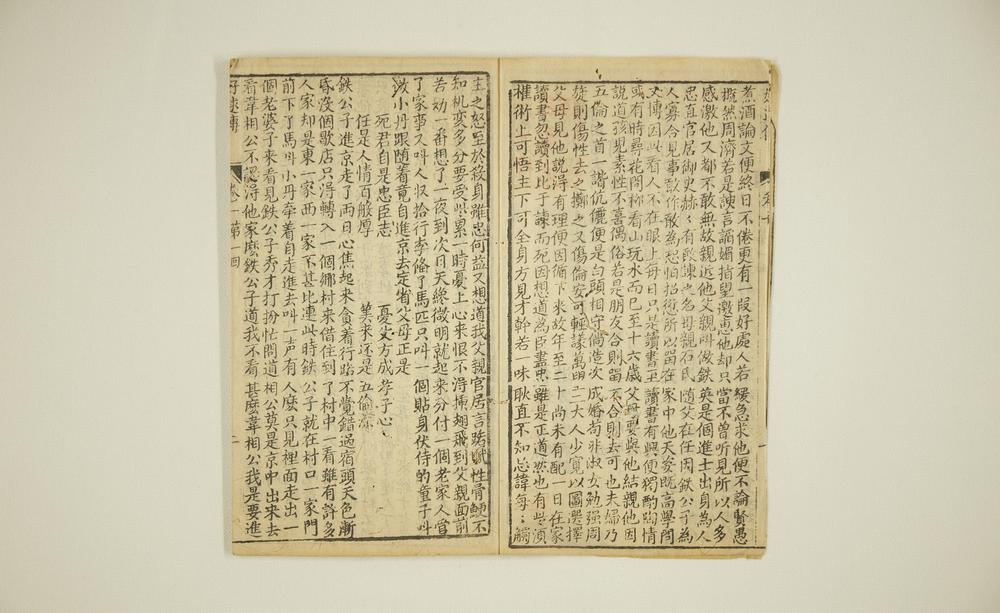 煮酒論文便終日不倦更有一段好處人若緩急求他便不論賢愚
慨然周濟若是諛言謟媚指望邀惠他却只當不曾听見所以人多
感激他又都不敢無故親近他父親叫做鉄英是個進士出身為人
忠直官居御史赫〻有敢諫之名母親石氏随父在任因鉄公子為
人寡合見事敢作敢為恐怕招愆所以留在家中他天姿既高學問
又博因此看人不在眼上每日只是讀書至讀書有興便獨酌陶情
或有時尋花問柳看山玩水而已至十六歲父母要與他結親他因
說道孩兒素性不喜偶俗若是朋友合則留不合則去可也夫婦乃
五倫之首一諧伉儷便是白頭相守倘造次成婚苟非淑女勉强周
旋則傷性去之擲之又傷倫安可輕議萬望二大人少寬以圖選擇
父母見他說得有理便因循下來故年至二十尚未有配一日在家
讀書忽讀到比干諫而死因想道為臣盡忠雖是正道然也有些須
權術上可悟主下可全身方見才幹若一味耿直不知忌諱每〻觸
主之怒至於殺身雖忠何益又想道我父親官居言路賦性骨鯁不
知机变多分要受些累一時憂上心來恨不得插翅飛到父親面前
苦劝一番想了一夜到次日天終微明就起來分付一個老家人管
了家事又叫人収拾行李俻了馬匹只叫一個貼身伏侍的童子叫
做小丹跟随着竟自進京去定省父母正是
死君自是忠臣志 憂父方成孝子心
任是人情百般厚 筭來还是五倫深
鉄公子進京走了兩日心焦起來貪着行路不覺錯過宿頭天色漸
昏沒個歇店只得轉入一個鄉村來借住到了村中一看雖有許多
人家却是東一家西一家不甚比連此時鉄公子就在村口一家門
前下了馬叫小丹牽着自走進去叫一声有人麽只見裡面走出一
個老婆子來看見鉄公子秀才打扮忙問道相公莫是京中出來去
看韋相公不認得他家麽鉄公子道我不看甚麽韋相公我是要進
好逑傳 卷一第一回 一